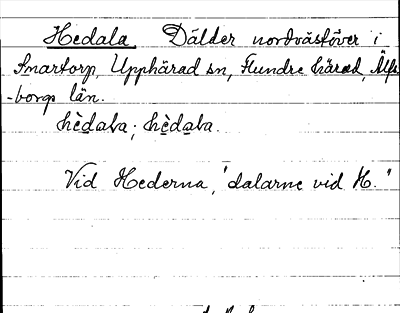 Hedala. Dälder nordväst över i
Snartorp, Upphärad sn, Flundre härad, Älfs
-borgs län.
hèdaɫa; hèdaɫa.
Vid Hederna, "dalarne vid H."